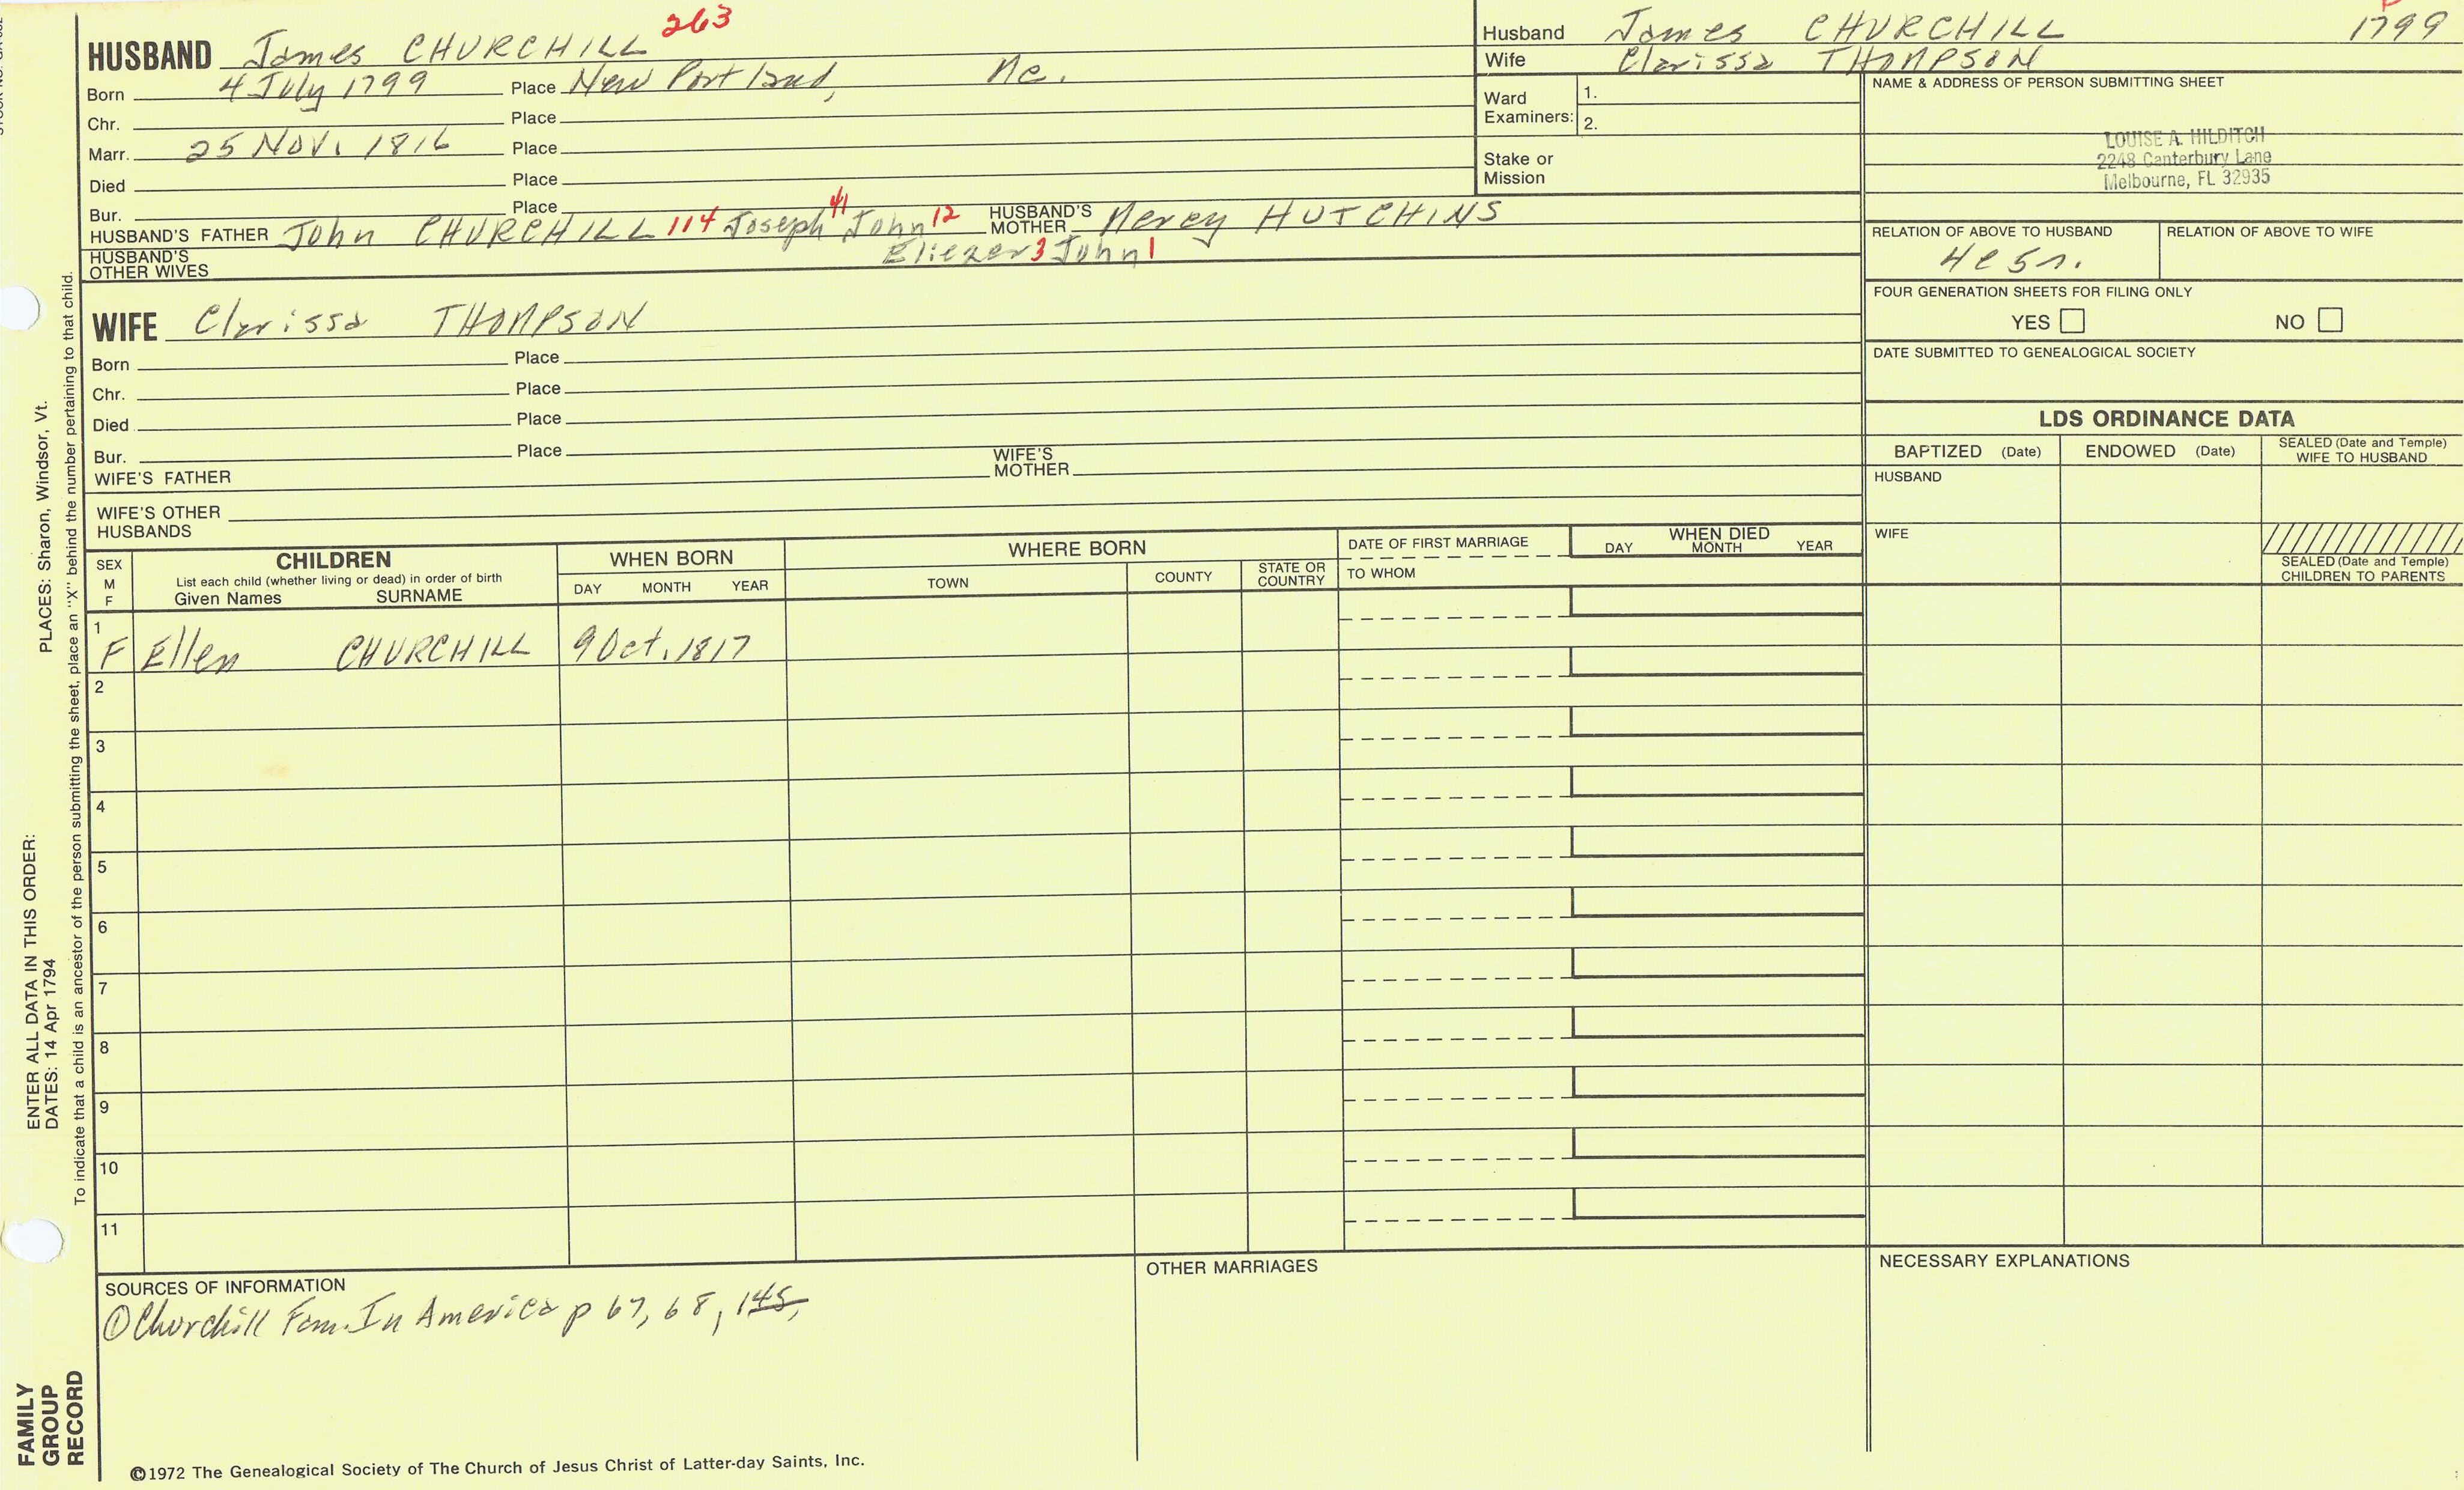 HUSBAND James CHURCHILL 263
Born 4 July 1799 Place New Portland, Me.
Chr. Place
Marr. 25 Nov. 1816 Place
Died Place
Bur. Place
HUSBAND'S FATHER John CHURCHILL 114 Joseph 41 John 12 HUSBAND'S MOTHER Mercy HUTCHINS
Eliezer 3 John 1
HUSBAND'S OTHER WIVES
WIFE Clarissa THOMPSON
Born Place
Chr. Place
Died Place
Bur. Place
WIFE'S FATHER WIFE'S MOTHER
WIFE'S OTHER HUSBANDS
Husband James CHURCHILL 1799
Wife Clarissa THOMPSON
Ward Examiners: 1.
2.
Stake or Mission
NAME & ADDRESS OF PERSON SUBMITTING SHEET
LOUISE A. HILDITCH
2248 Canterbury Lane
Melbourne, FL 32935
RELATION OF ABOVE TO HUSBAND RELATION OF ABOVE TO WIFE
FOUR GENERATION SHEETS FOR FILING ONLY
YES NO
DATE SUBMITTED TO GENEALOGICAL SOCIETY
LDS ORDINANCE DATA
BAPTIZED (Date) ENDOWED (Date) SEALED (Date and Temple) WIFE TO HUSBAND
HUSBAND
WIFE
SEALED (Date and Temple) CHILDREN TO PARENTS
SEX M F
CHILDREN
List each child (whether living or dead) in order of birth
Given Names SURNAME
WHEN BORN
DAY MONTH YEAR
WHERE BORN
TOWN COUNTY STATE OR COUNTRY
DATE OF FIRST MARRIAGE
TO WHOM
WHEN DIED
DAY MONTH YEAR
1
F Ellen CHURCHILL 9 Oct. 1817
2
3
4
5
6
7
8
9
10
11
SOURCES OF INFORMATION
① Churchill Fam. In America p 67, 68, 145,
OTHER MARRIAGES
NECESSARY EXPLANATIONS
©1972 The Genealogical Society of The Church of Jesus Christ of Latter-day Saints, Inc.
FAMILY
GROUP
RECORD
ENTER ALL DATA IN THIS ORDER:
DATES: 14 Apr 1794
PLACES: Sharon, Windsor, Vt.
To indicate that a child is an ancestor of the person submitting the sheet, place an "X" behind the number pertaining to that child.